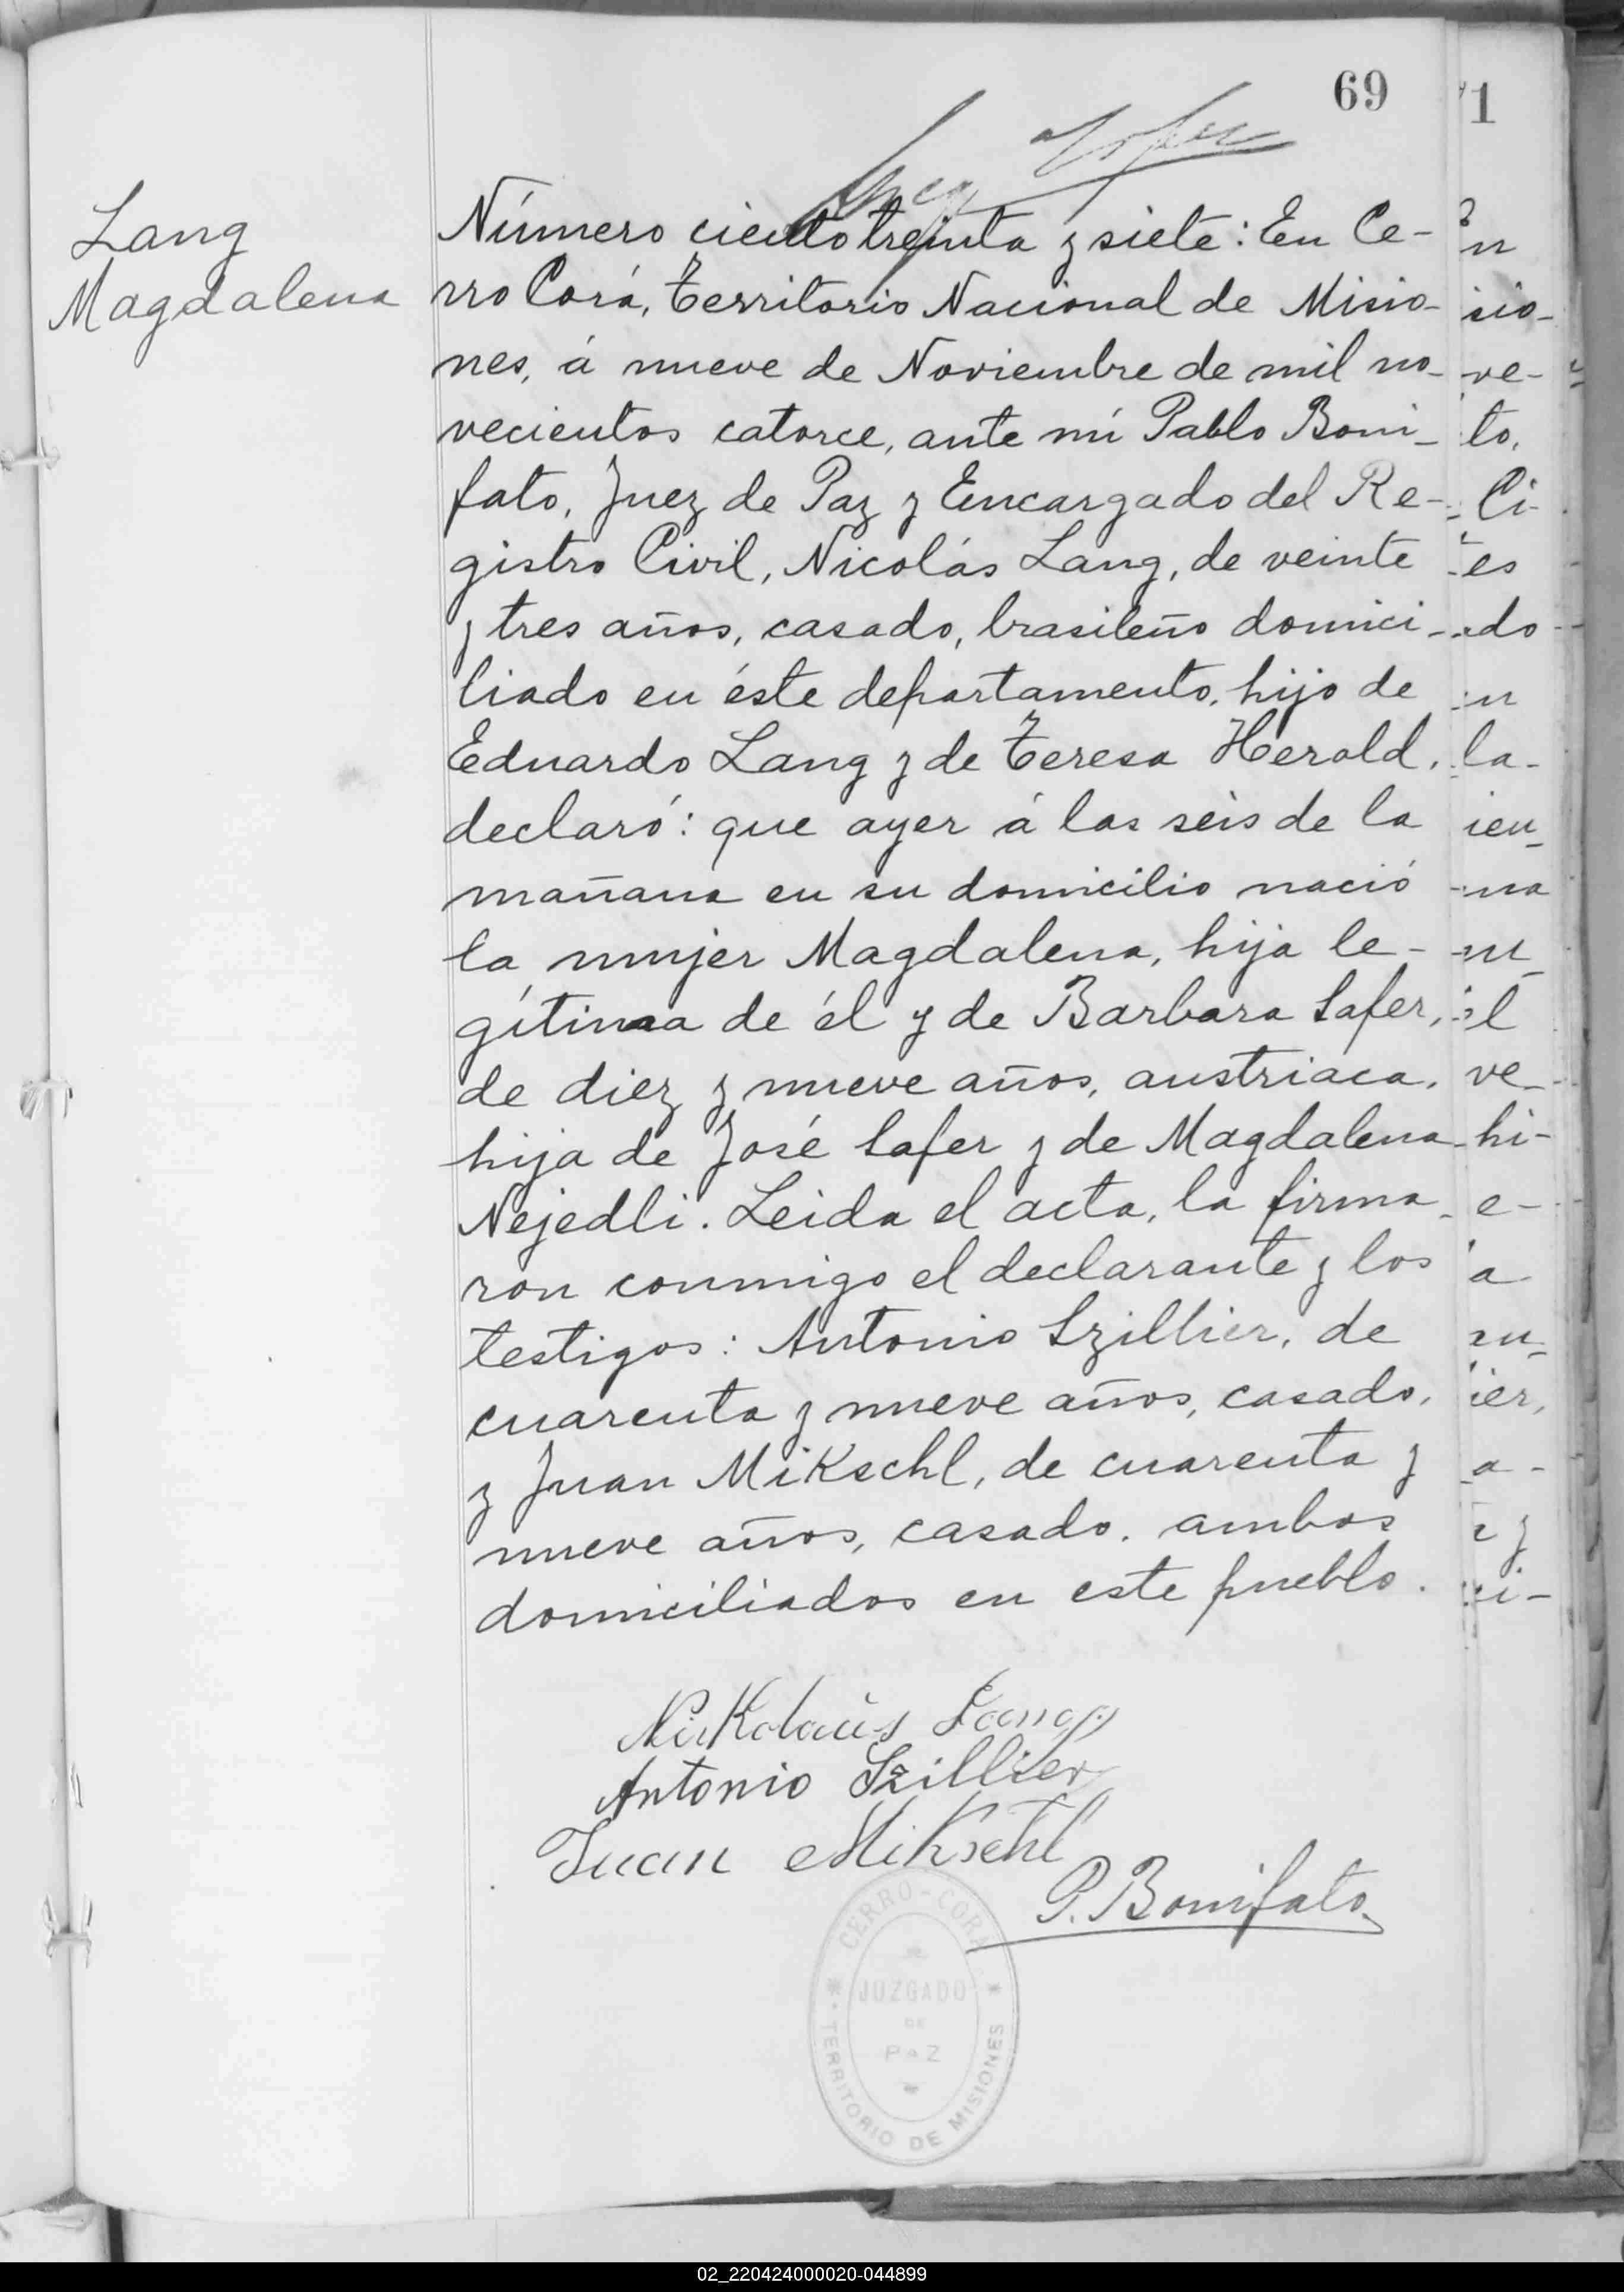 69
1
Lang
Magdalena
Número ciento treinta y siete: En Ce-
rro Corá, Territorio Nacional de Misio-
nes, á nueve de Noviembre de mil no-
vecientos catorce, ante mí Pablo Boni-
fato, Juez de Paz y Encargado del Re-
gistro Civil, Nicolás Lang, de veinte
y tres años, casado, brasileño domici-
liado en éste departamento, hijo de
Eduardo Lang y de Teresa Herold,
declaró: que ayer á las seis de la
mañana en su domicilio nació
la mujer Magdalena, hija le-
gítima de él y de Barbara Safer,
de diez y nueve años, austriaca,
hija de José Safer y de Magdalena
Nejedli. Leida el acta, la firma-
ron conmigo el declarante y los
testigos: Antonio Szillier, de
cuarenta y nueve años, casado,
y Juan Mikschl, de cuarenta y
nueve años, casado. ambos
domiciliados en este pueblo.
Nikolaus Lang
Antonio Szillier
Juan Mikschl
P. Bonifato
CERRO-CORA
JUZGADO
DE
PAZ
TERRITORIO DE MISIONES
02_220424000020-044899